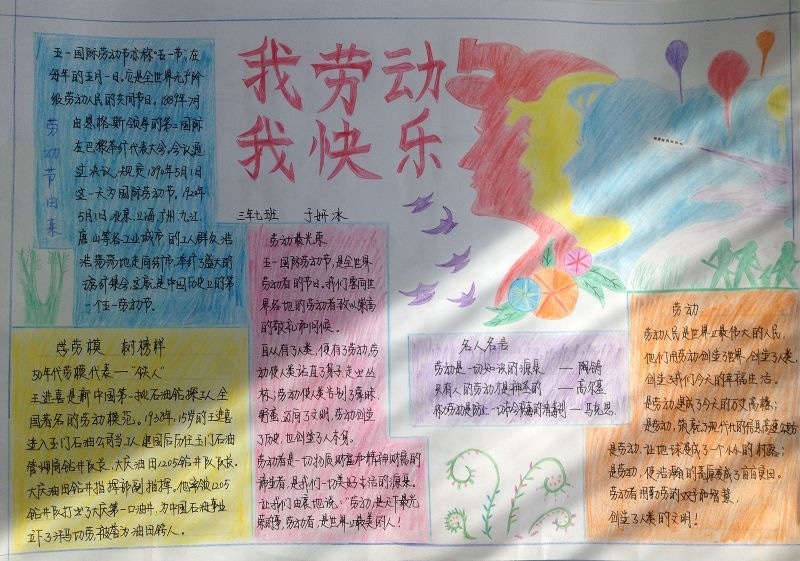 我劳动
我快乐
三年七班 于妍冰
劳动节由来
五一国际劳动节亦称"五一节",在
每年的五月一日。它是全世界无产阶
级劳动人民的共同节日。1889年7月
由恩格斯领导的第二国际
在巴黎举行代表大会。会议通
过决议,规定1890年5月1日
这一天为国际劳动节。1920年
5月1日,北京、上海、广州、九江、
唐山等各工业城市的工人群众浩
浩荡荡地走向街市,举行了盛大的
游行集会,这就是中国历史上的第
一个五一劳动节。
学劳模 树榜样
50年代劳模代表——"铁人"
王进喜是新中国第一批石油钻探工人,全
国著名的劳动模范。1938年,15岁的王进喜
进入玉门石油公司当工人,建国后历任玉门石油
管理局钻井队长、大庆油田1205钻井队队长、
大庆油田钻井指挥部副指挥。他率领1205
钻井队打出了大庆第一口油井,为中国石油事业
立下了汗马功劳,被誉为油田铁人。
劳动最光荣
五一国际劳动节,是全世界
劳动者的节日。我们要向世
界各地的劳动者致以崇高
的敬礼和问候。
自从有了人类,便有了劳动,劳
动使人类站直了身子走出丛
林;劳动使人类告别了蒙昧、
野蛮,迈向了文明,劳动创造
了历史,也创造了人本身。
劳动者是一切物质财富和精神财富的
创造者,是我们一切美好生活的源泉。
让我们由衷地说:"劳动,是天下最光
荣的事,劳动者,是世界上最美的人!
名人名言
劳动是一切知识的源泉 ——陶铸
只有人的劳动才是神圣的 ——高尔基
——马克思
劳动
劳动人民是世界上最伟大的人民,
他们用劳动创造了世界、创造了人类,
创造了我们今天的幸福生活。
是劳动,建成了今天的万丈高楼;
是劳动,筑就了现代化的信息高速公路;
是劳动,让地球变成了一个小小的村落;
是劳动,使浩瀚的荒原变成了亩亩良田。
劳动者用勤劳的双手和智慧,
创造了人类的文明!